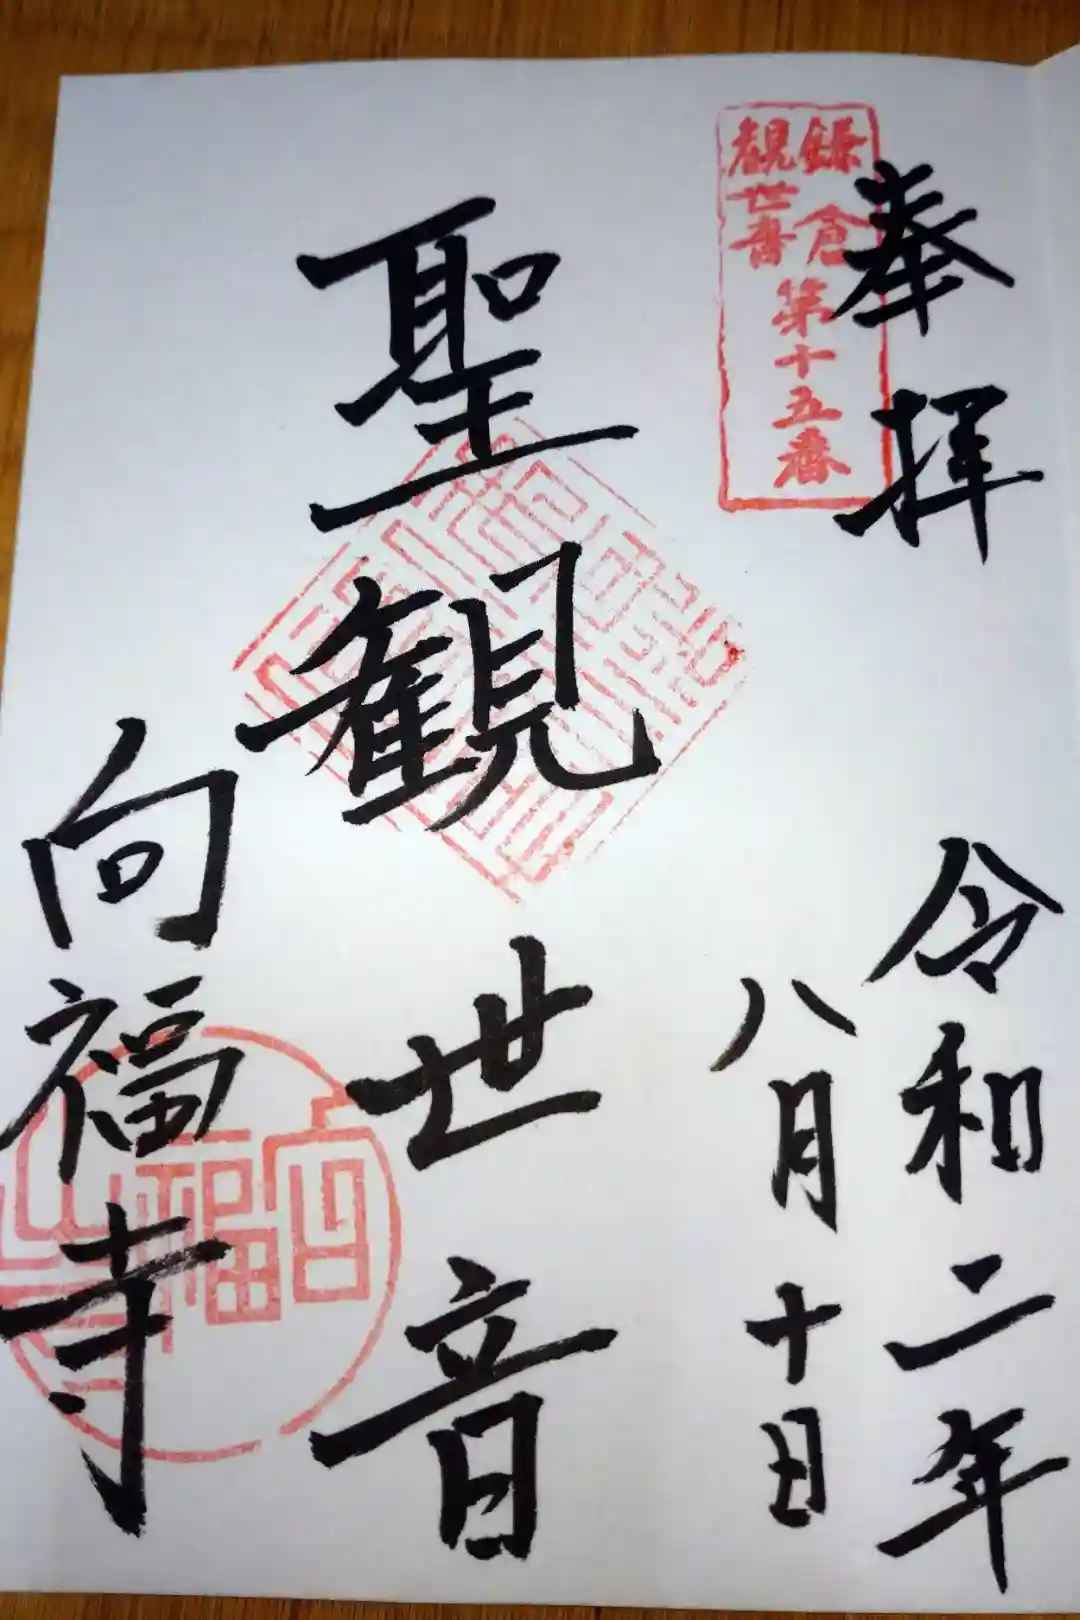 奉拝
令和二年
八月十日
鎌倉
観世音
第十五番
聖観世音
向福寺